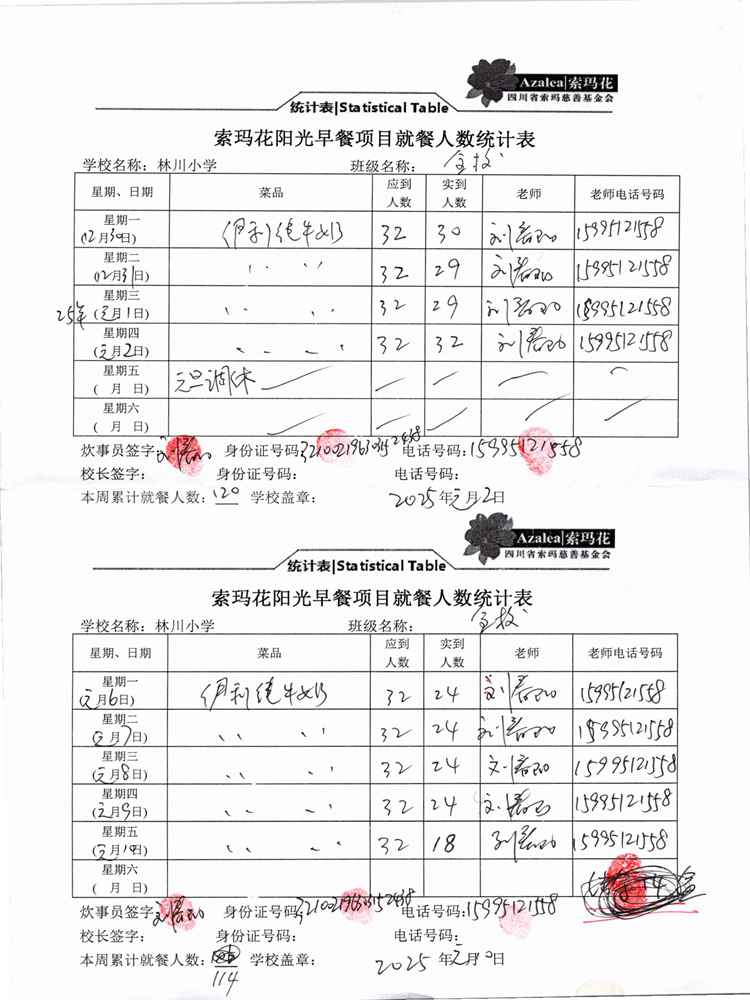 Azalea|索玛花
四川省索玛慈善基金会
统计表|Statistical Table
索玛花阳光早餐项目就餐人数统计表
学校名称：林川小学 班级名称：全校
星期、日期 菜品 应到人数 实到人数 老师 老师电话号码
星期一 (12月30日) 伊利纯牛奶 32 30 15995121558
星期二 (12月31日) 〃 〃 32 29 15995121558
星期三 25年 (元月1日) 〃 〃 32 29 15995121558
星期四 (元月2日) 〃 〃 32 32 15995121558
星期五 ( 月 日) 元旦调休
星期六 ( 月 日)
炊事员签字： 身份证号码： 电话号码：15995121558
校长签字： 身份证号码： 电话号码：
本周累计就餐人数：120 学校盖章： 2025年元月2日
Azalea|索玛花
四川省索玛慈善基金会
统计表|Statistical Table
索玛花阳光早餐项目就餐人数统计表
学校名称：林川小学 班级名称：全校
星期、日期 菜品 应到人数 实到人数 老师 老师电话号码
星期一 (元月6日) 伊利纯牛奶 32 24 15995121558
星期二 (元月7日) 〃 〃 32 24 15995121558
星期三 (元月8日) 〃 〃 32 24 15995121558
星期四 (元月9日) 〃 〃 32 24 15995121558
星期五 (元月10日) 〃 〃 32 18 15995121558
星期六 ( 月 日)
炊事员签字： 身份证号码： 电话号码：15995121558
校长签字： 身份证号码： 电话号码：
本周累计就餐人数：114 学校盖章： 2025年元月10日